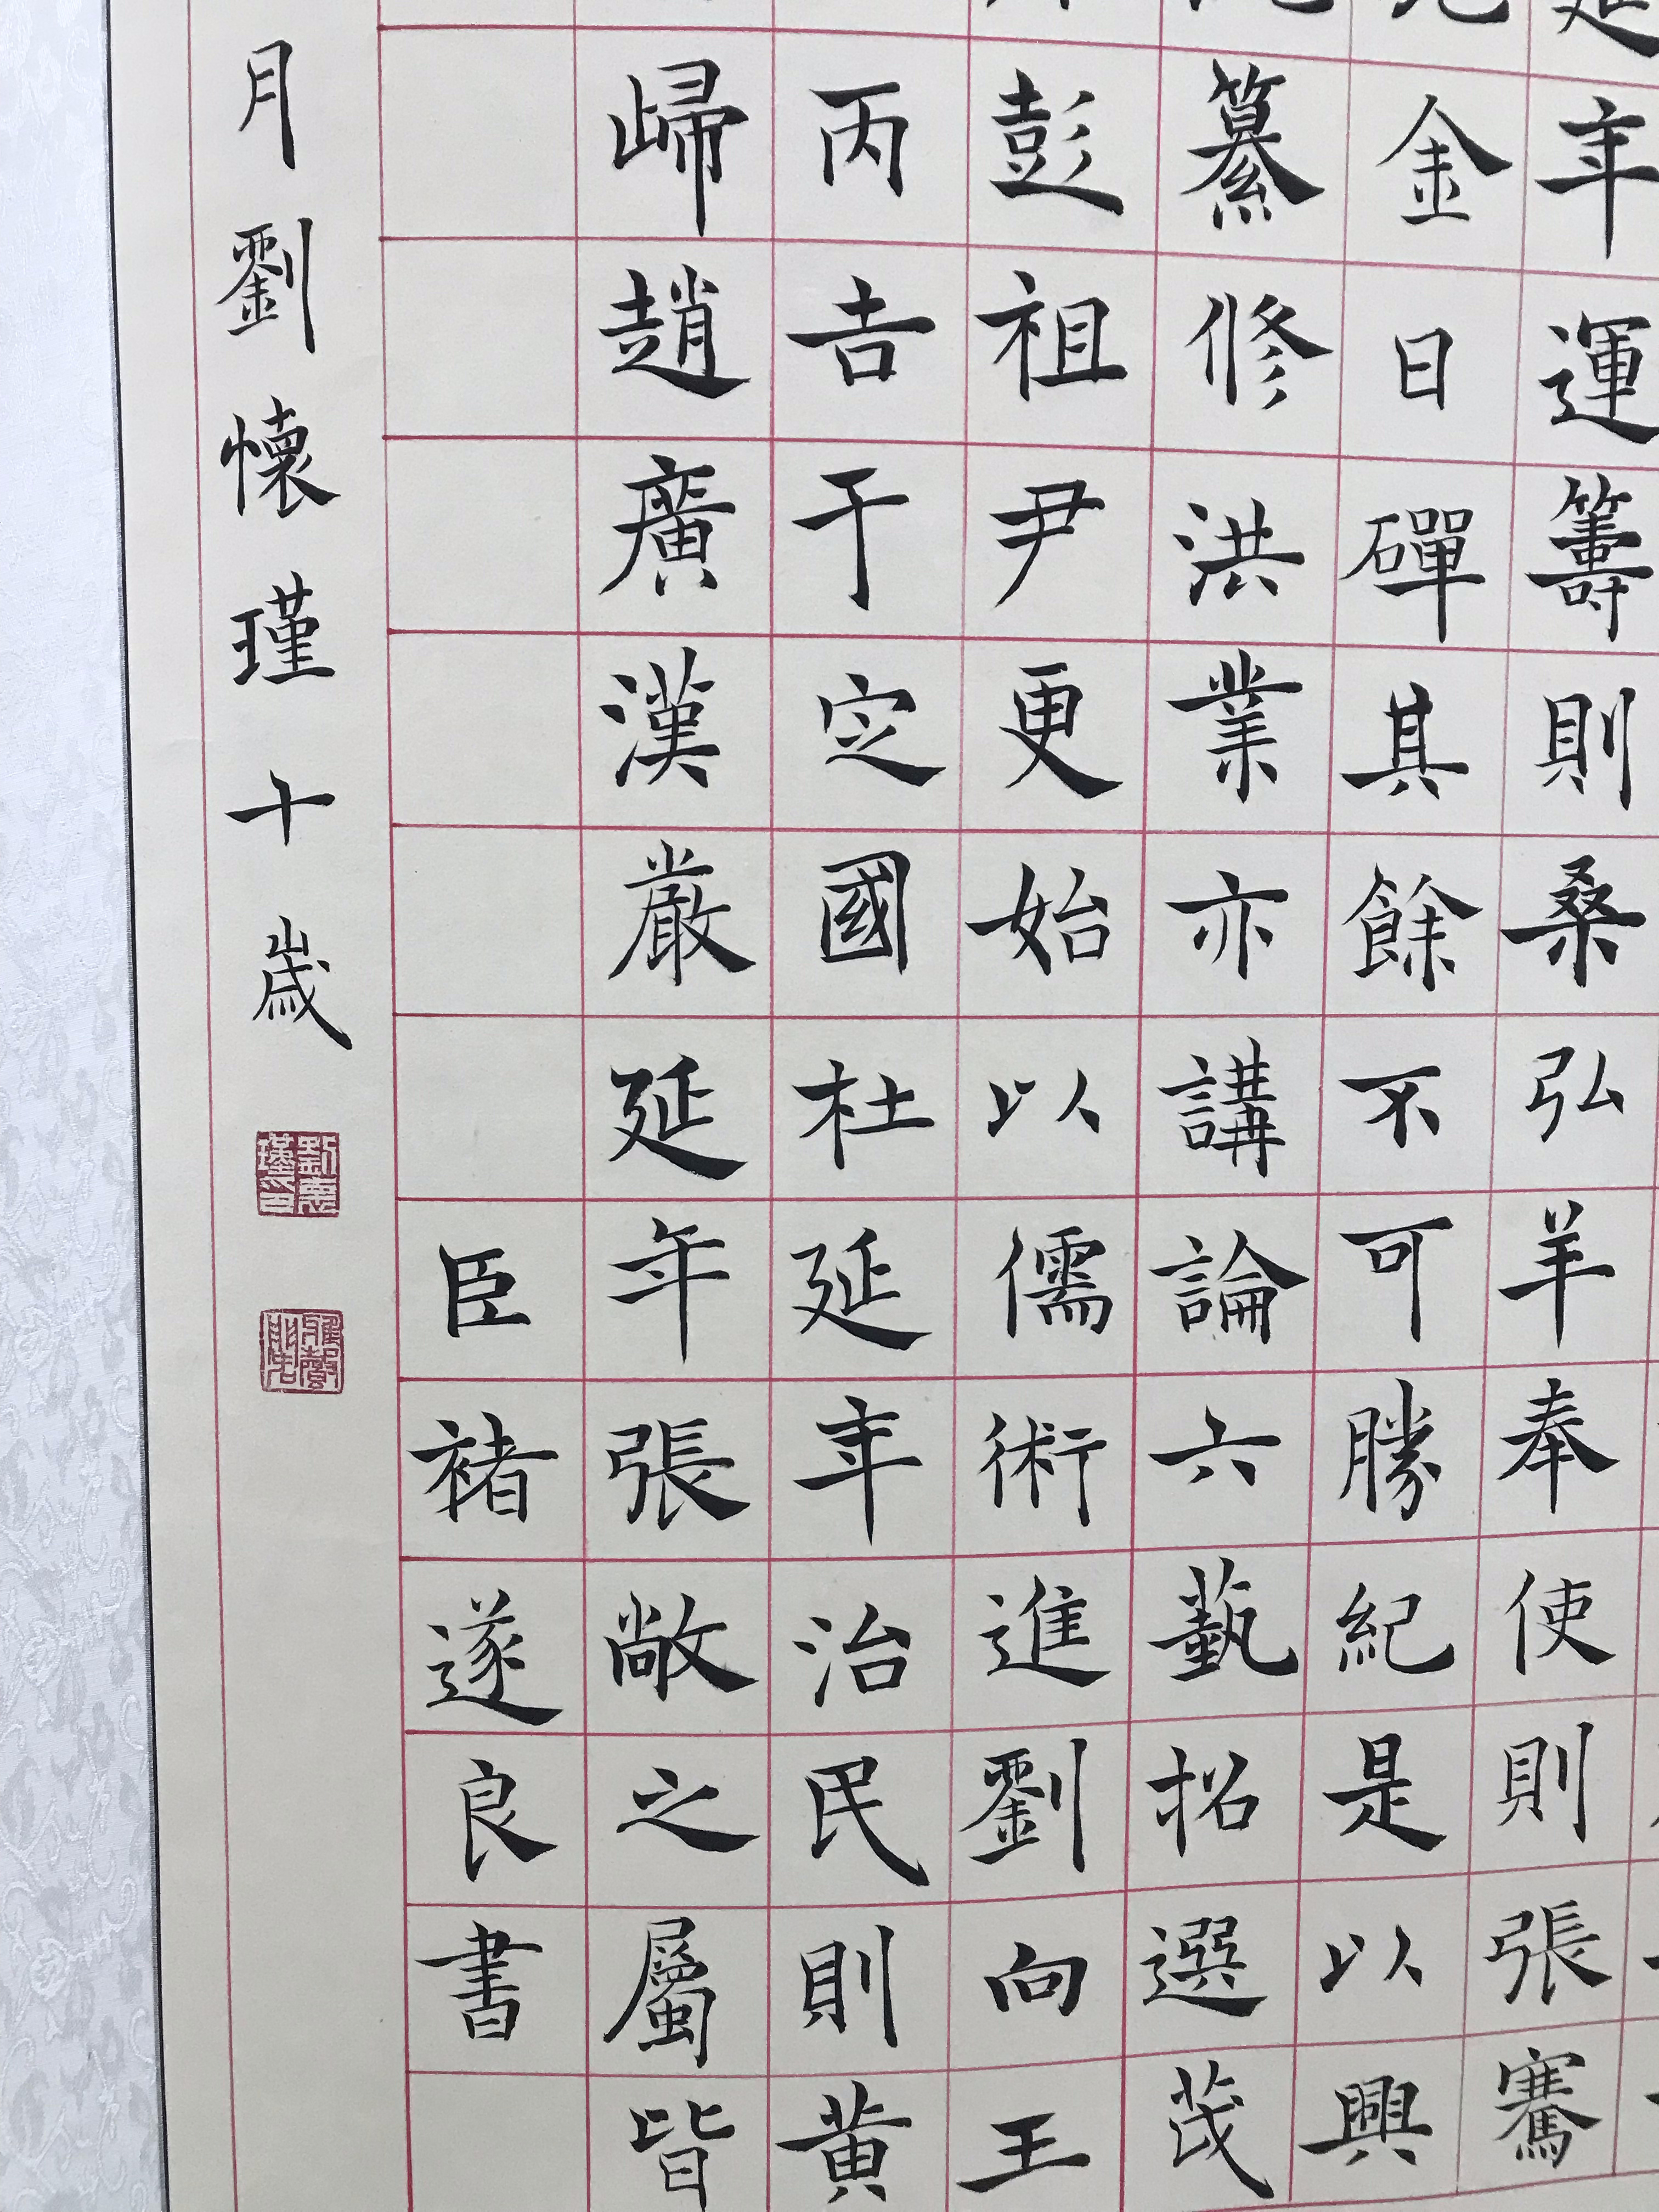 年運籌則桑弘羊奉使則張騫
金日磾其餘不可勝紀是以興
纂修洪業亦講論六藝招選茂
彭祖尹更始以儒術進劉向王
丙吉于定國杜延年治民則黃
歸趙廣漢嚴延年張敞之屬皆
臣褚遂良書
月劉懷瑾十歲